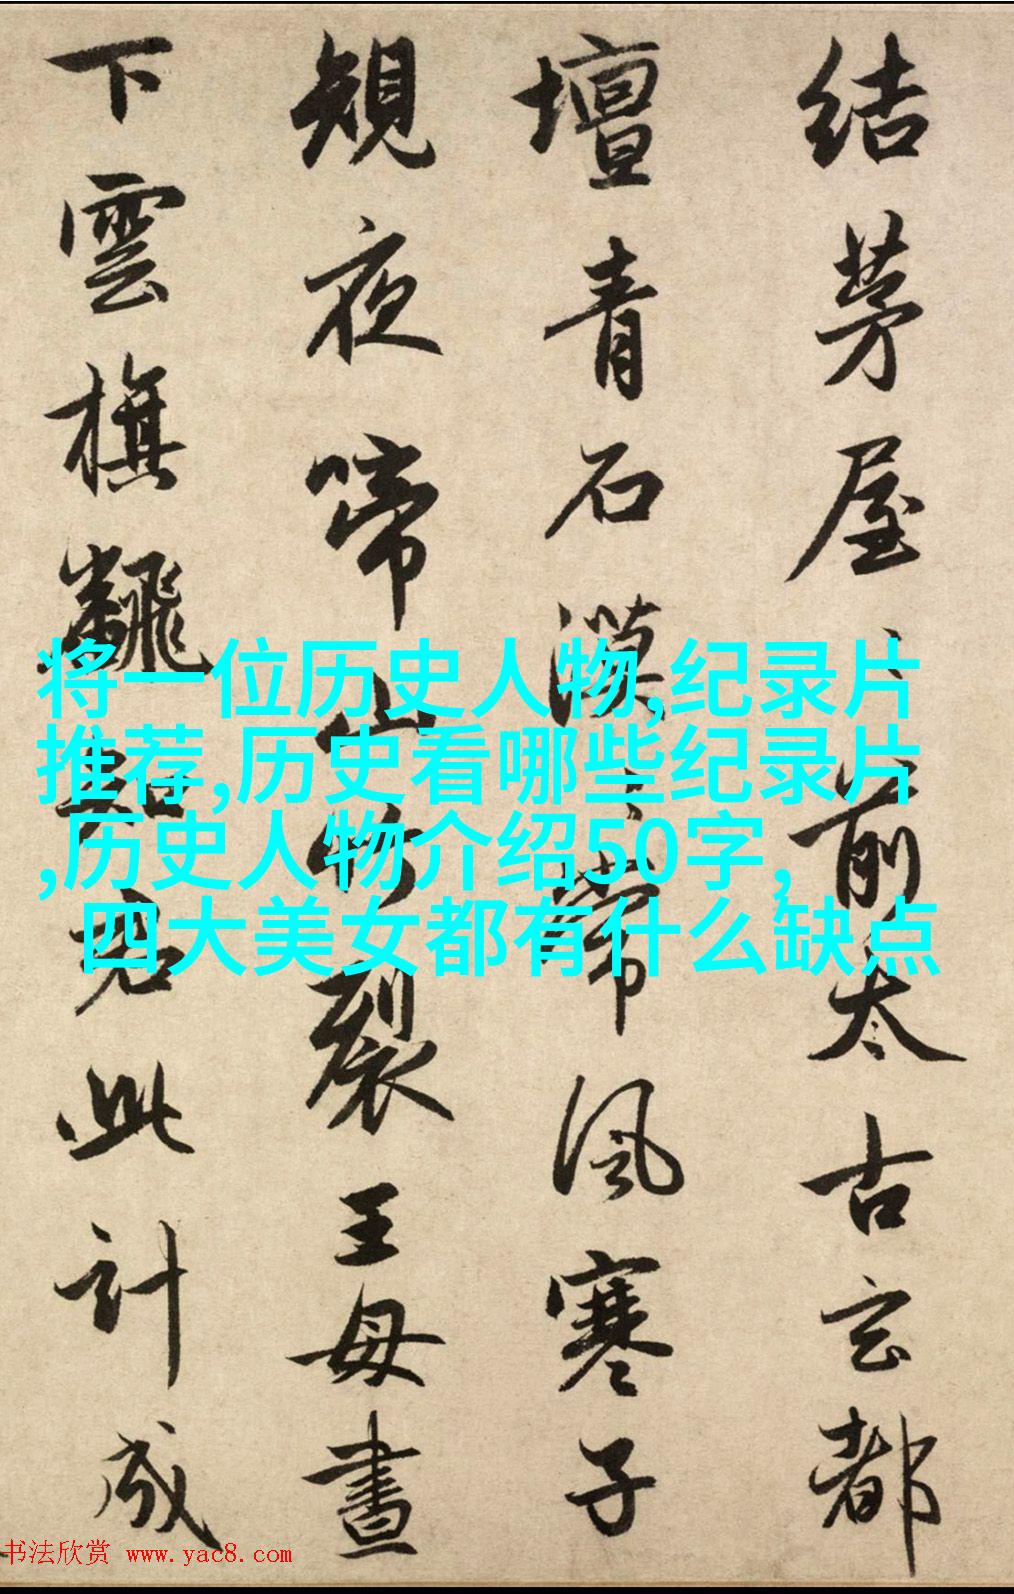 結茅屋前太古玄都
壇青石漠〻常風寒子
規夜啼山竹裂王母晝
下雲旗飜知君此計成
将一位历史人物,纪录片
推荐,历史看哪些纪录片
,历史人物介绍50字,
四大美女都有什么缺点
书法欣赏 www.yac8.com